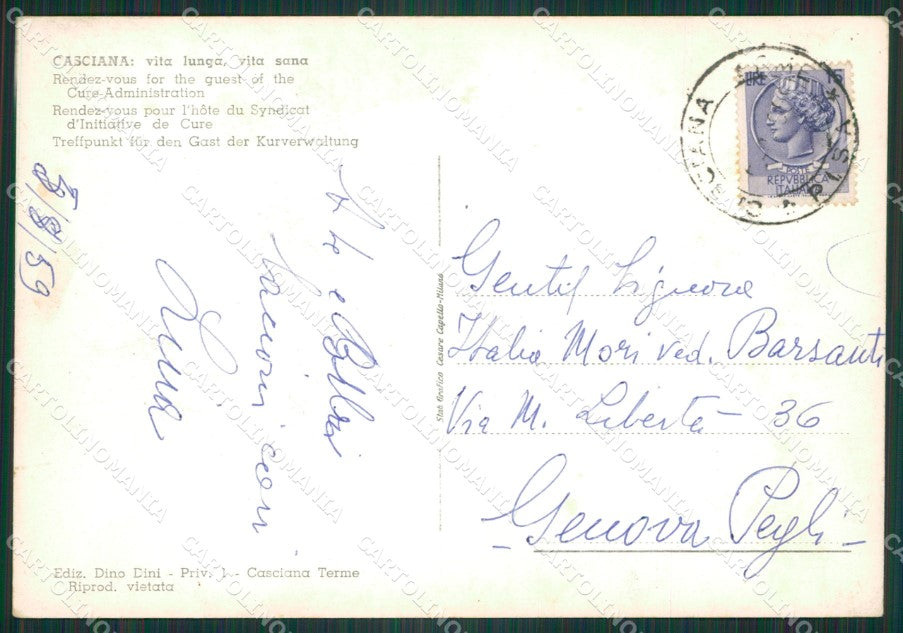 CASCIANA: vita lunga, vita sana
Rendez-vous for the guest of the
Cure-Administration
Rendez-vous pour l'hôte du Syndicat
d'Initiative de Cure
Treffpunkt für den Gast der Kurverwaltung
LIRE 15
POSTE
REPVBBLICA
ITALIANA
CASCIANA TERME * PISA *
/59
Gentil Signora
Italia Mori ved. Barsanti
Via M. Libertà 36
- Genova Pegli -
Stab Grafico Cesare Capello-Milano
Ediz. Dino Dini - Priv. 1 - Casciana Terme
Riprod. vietata
CARTOLINOMANIA